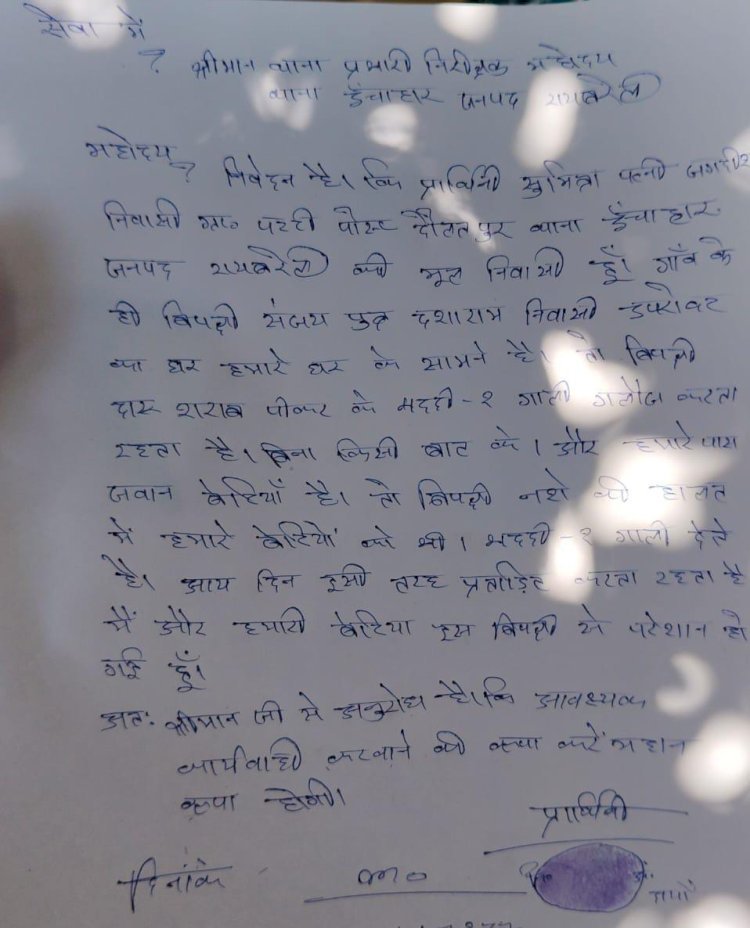 सेवा में
, श्रीमान थाना प्रभारी निरीक्षक महोदय
थाना ऊँचाहार जनपद रायबरेली
महोदय,
निवेदन है। कि प्रार्थिनी सुमित्रा पत्नी जगदीश
निवासी ग्राम पट्टी पोस्ट दौलतपुर थाना ऊँचाहार
जनपद रायबरेली की मूल निवासी हूँ। गाँव के
ही विपक्षी संजय पुत्र दशाराम निवासी उपरोक्त
का घर हमारे घर के सामने है। तो विपक्षी
दारू शराब पीकर के भद्दी-२ गाली गलौज करता
रहता है। बिना किसी बात के। और हमारे पास
जवान बेटियाँ है। तो विपक्षी नशे की हालत
में हमारे बेटियों को भी। भद्दी-२ गाली देते
है। आय दिन इसी तरह प्रताड़ित करता रहता है
मैं और हमारी बेटिया इस विपक्षी से परेशान हो
गई हूँ।
अतः श्रीमान जी से अनुरोध है। कि आवश्यक
कार्यवाही करवाने की कृपा करें महान
कृपा होगी।
प्रार्थिनी
दिनांक मो०